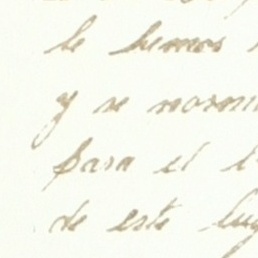 le hemos
y se norm
para el b
de este lug